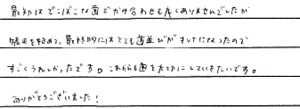 最初はでこぼこな歯でかみ合わせも良くありませんでしたが
矯正を始めて最終的にはとても歯並びがきれいになったので
すごくうれしかったです。これからも歯を大切にしていきたいです。
ありがとうございました!